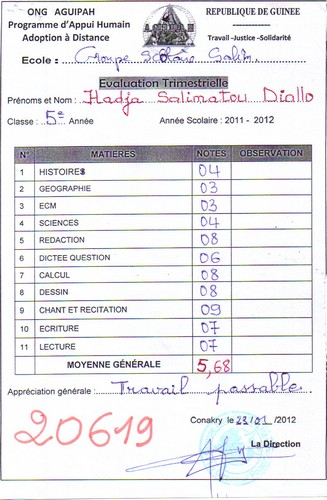 ONG AGUIPAH
Programme d'Appui Humain
Adoption à Distance
REPUBLIQUE DE GUINEE
Travail -Justice -Solidarité
Ecole : Groupe Scolaire Salim
Evaluation Trimestrielle
Prénoms et Nom : Hadja Salimatou Diallo
Classe : 5e Année Année Scolaire : 2011 - 2012
N° MATIERES NOTES OBSERVATION
1 HISTOIRES 04
2 GEOGRAPHIE 03
3 ECM 03
4 SCIENCES 04
5 REDACTION 08
6 DICTEE QUESTION 06
7 CALCUL 08
8 DESSIN 08
9 CHANT ET RECITATION 09
10 ECRITURE 07
11 LECTURE 07
MOYENNE GÉNÉRALE 5,68
Appréciation générale : Travail passable
20619
Conakry le 23/01/2012
La Direction